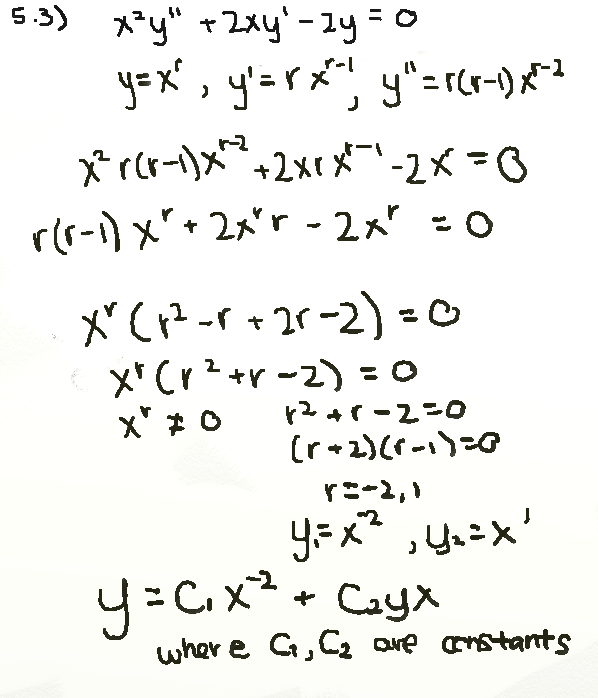 5.3) x²y" + 2xy' - 2y = 0
y=xʳ, y'=r xʳ⁻¹, y"=r(r-1)xʳ⁻²
x² r(r-1)xʳ⁻² + 2xr xʳ⁻¹ - 2xʳ = 0
r(r-1) xʳ + 2xʳr - 2xʳ = 0
xʳ(r² - r + 2r - 2) = 0
xʳ(r² + r - 2) = 0
xʳ ≠ 0 r² + r - 2 = 0
(r+2)(r-1)=0
r=-2,1
y₁=x⁻², y₂=x¹
y = C₁x⁻² + C₂yx
where C₁, C₂ are constants